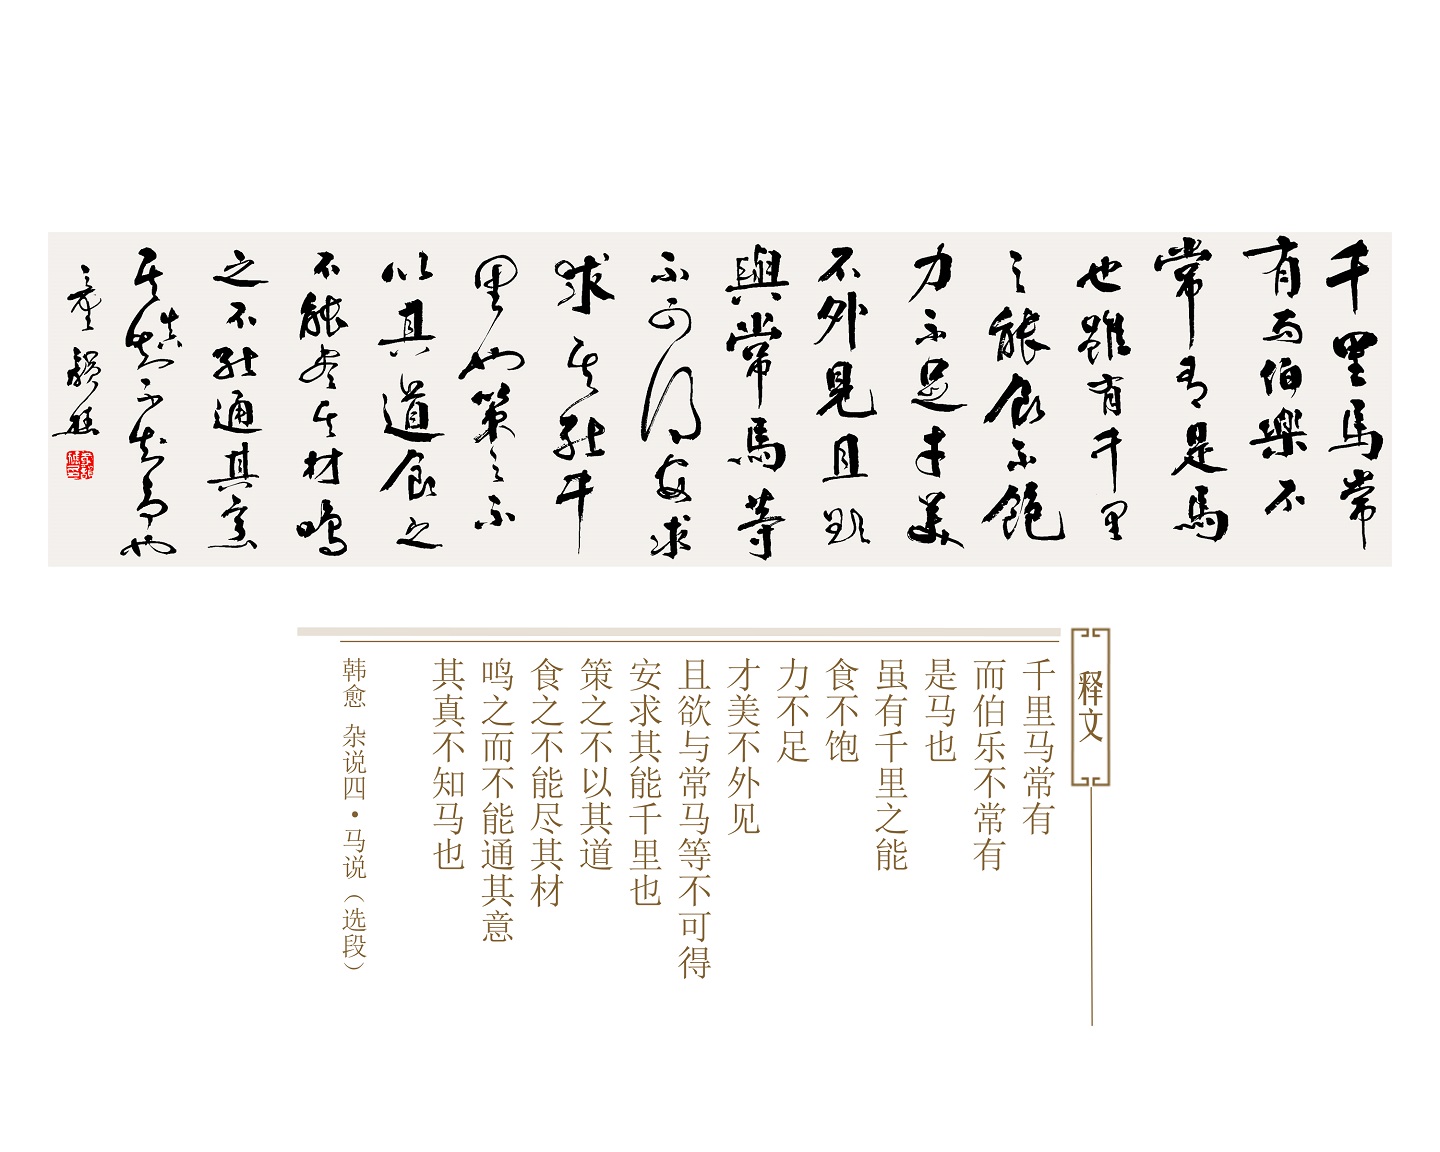 千里馬常
有而伯樂不
常有是馬
也雖有千里
之能食不飽
力不足才美
不外見且欲
與常馬等
不可得安求
求其能千
里也策之不
以其道食之
不能尽其材鳴
之不能通其意
其真不知馬也
释文
千里马常有
而伯乐不常有
是马也
虽有千里之能
食不饱
力不足
才美不外见
且欲与常马等不可得
安求其能千里也
策之不以其道
食之不能尽其材
鸣之而不能通其意
其真不知马也
韩愈 杂说四·马说（选段）